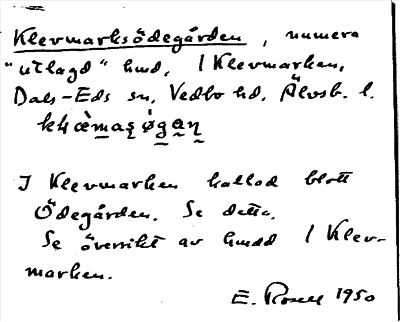 Klevmarksödegården, numera
"utlagd" hmd, I Klevmarken,
Dals-Eds sn, Vedbo hd, Älvsb. l.
I Klevmarken kallad blott
Ödegården. Se detta.
Se översikt av hmdd I Klev-
marken.
E. Rosell 1950